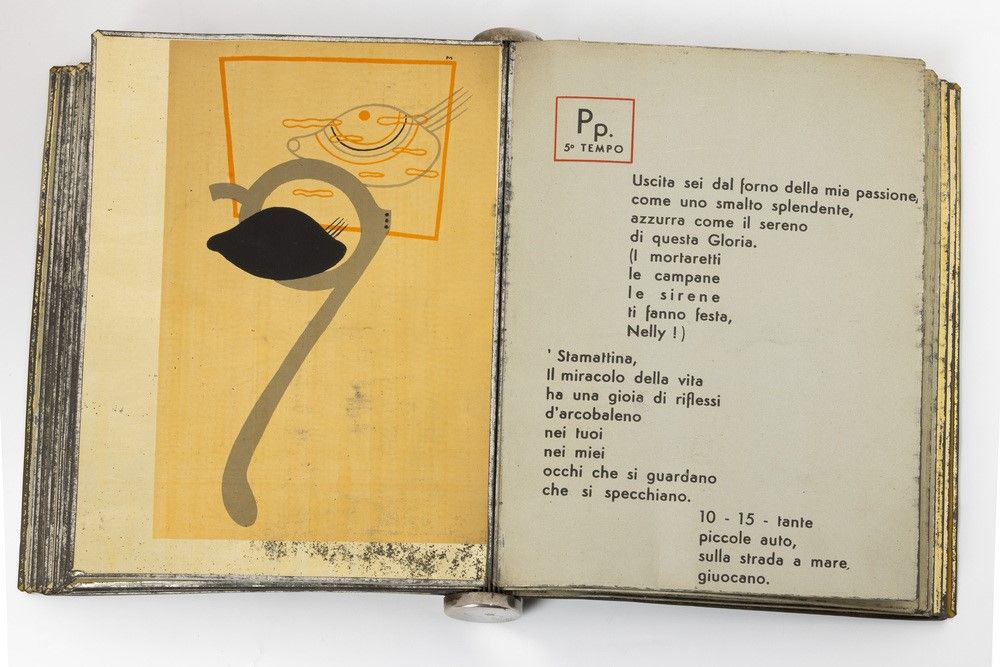 M
Pp.
5º TEMPO
Uscita sei dal forno della mia passione,
come uno smalto splendente,
azzurra come il sereno
di questa Gloria.
(I mortaretti
le campane
le sirene
ti fanno festa,
Nelly !)
' Stamattina,
Il miracolo della vita
ha una gioia di riflessi
d'arcobaleno
nei tuoi
nei miei
occhi che si guardano
che si specchiano.
10 - 15 - tante
piccole auto,
sulla strada a mare,
giuocano.